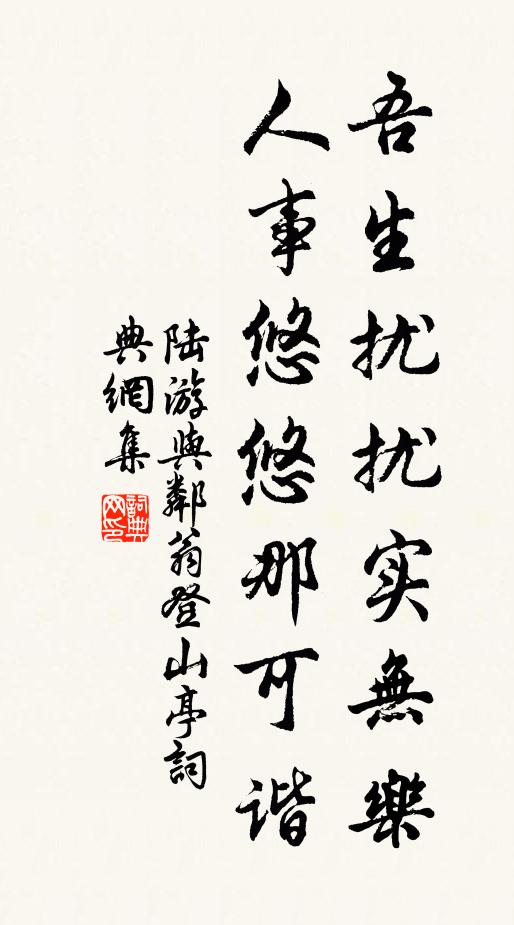 吾生扰扰实無樂
人事悠悠那可谐
陆游與鄰翁登山亭詞
典網集
詞典網印